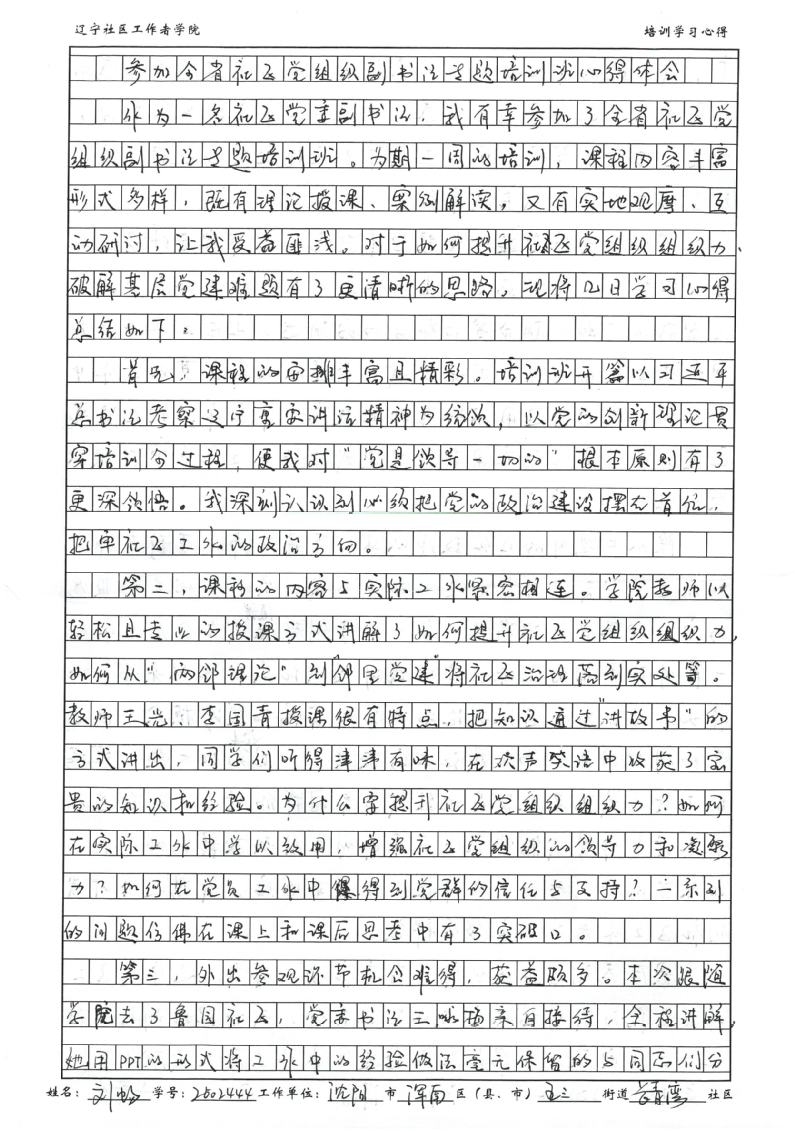 辽宁社区工作者学院 培训学习心得
参加全省社区党组织副书记专题培训班心得体会
作为一名社区党委副书记,我有幸参加了全省社区党
组织副书记专题培训班。为期一周的培训,课程内容丰富
形式多样,既有理论授课、案例解读,又有实地观摩、互
动研讨,让我受益匪浅。对于如何提升社区党组织组织力、
破解基层党建难题有了更清晰的思路,现将几日学习心得
总结如下:
首先,课程的安排丰富且精彩。培训班开篇以习近平
总书记考察辽宁重要讲话精神为统领,以党的创新理论贯
穿培训全过程,使我对"党是领导一切的"根本原则有了
更深领悟。我深刻认识到必须把党的政治建设摆在首位,
把牢社区工作的政治方向。
第二,课程的内容与实际工作紧密相连。学院教师以
轻松且专业的授课方式讲解了如何提升社区党组织组织力,
如何从"两邻理论"到"邻里党建"将社区治理落到实处等。
教师王光、李国青授课很有特点,把知识通过"讲故事"的
方式讲出,同学们听得津津有味,在欢声笑语中收获了宝
贵的知识和经验。为什么要提升社区党组织组织力?如何
在实际工作中学以致用,增强社区党组织的领导力和凝聚
力?如何在党员工作中获得到党群的信任与支持?一系列
的问题仿佛在课上和课后思考中有了突破口。
第三,外出参观环节机会难得,获益颇多。本次跟随
学院去了鲁园社区,党委书记王咏梅亲自接待,全程讲解,
她用PPT的形式将工作中的经验做法毫无保留的与同志们分
姓名:刘畅 学号:2502444 工作单位:沈阳 市 浑南 区(县、市) 五三 街道 长青湾 社区